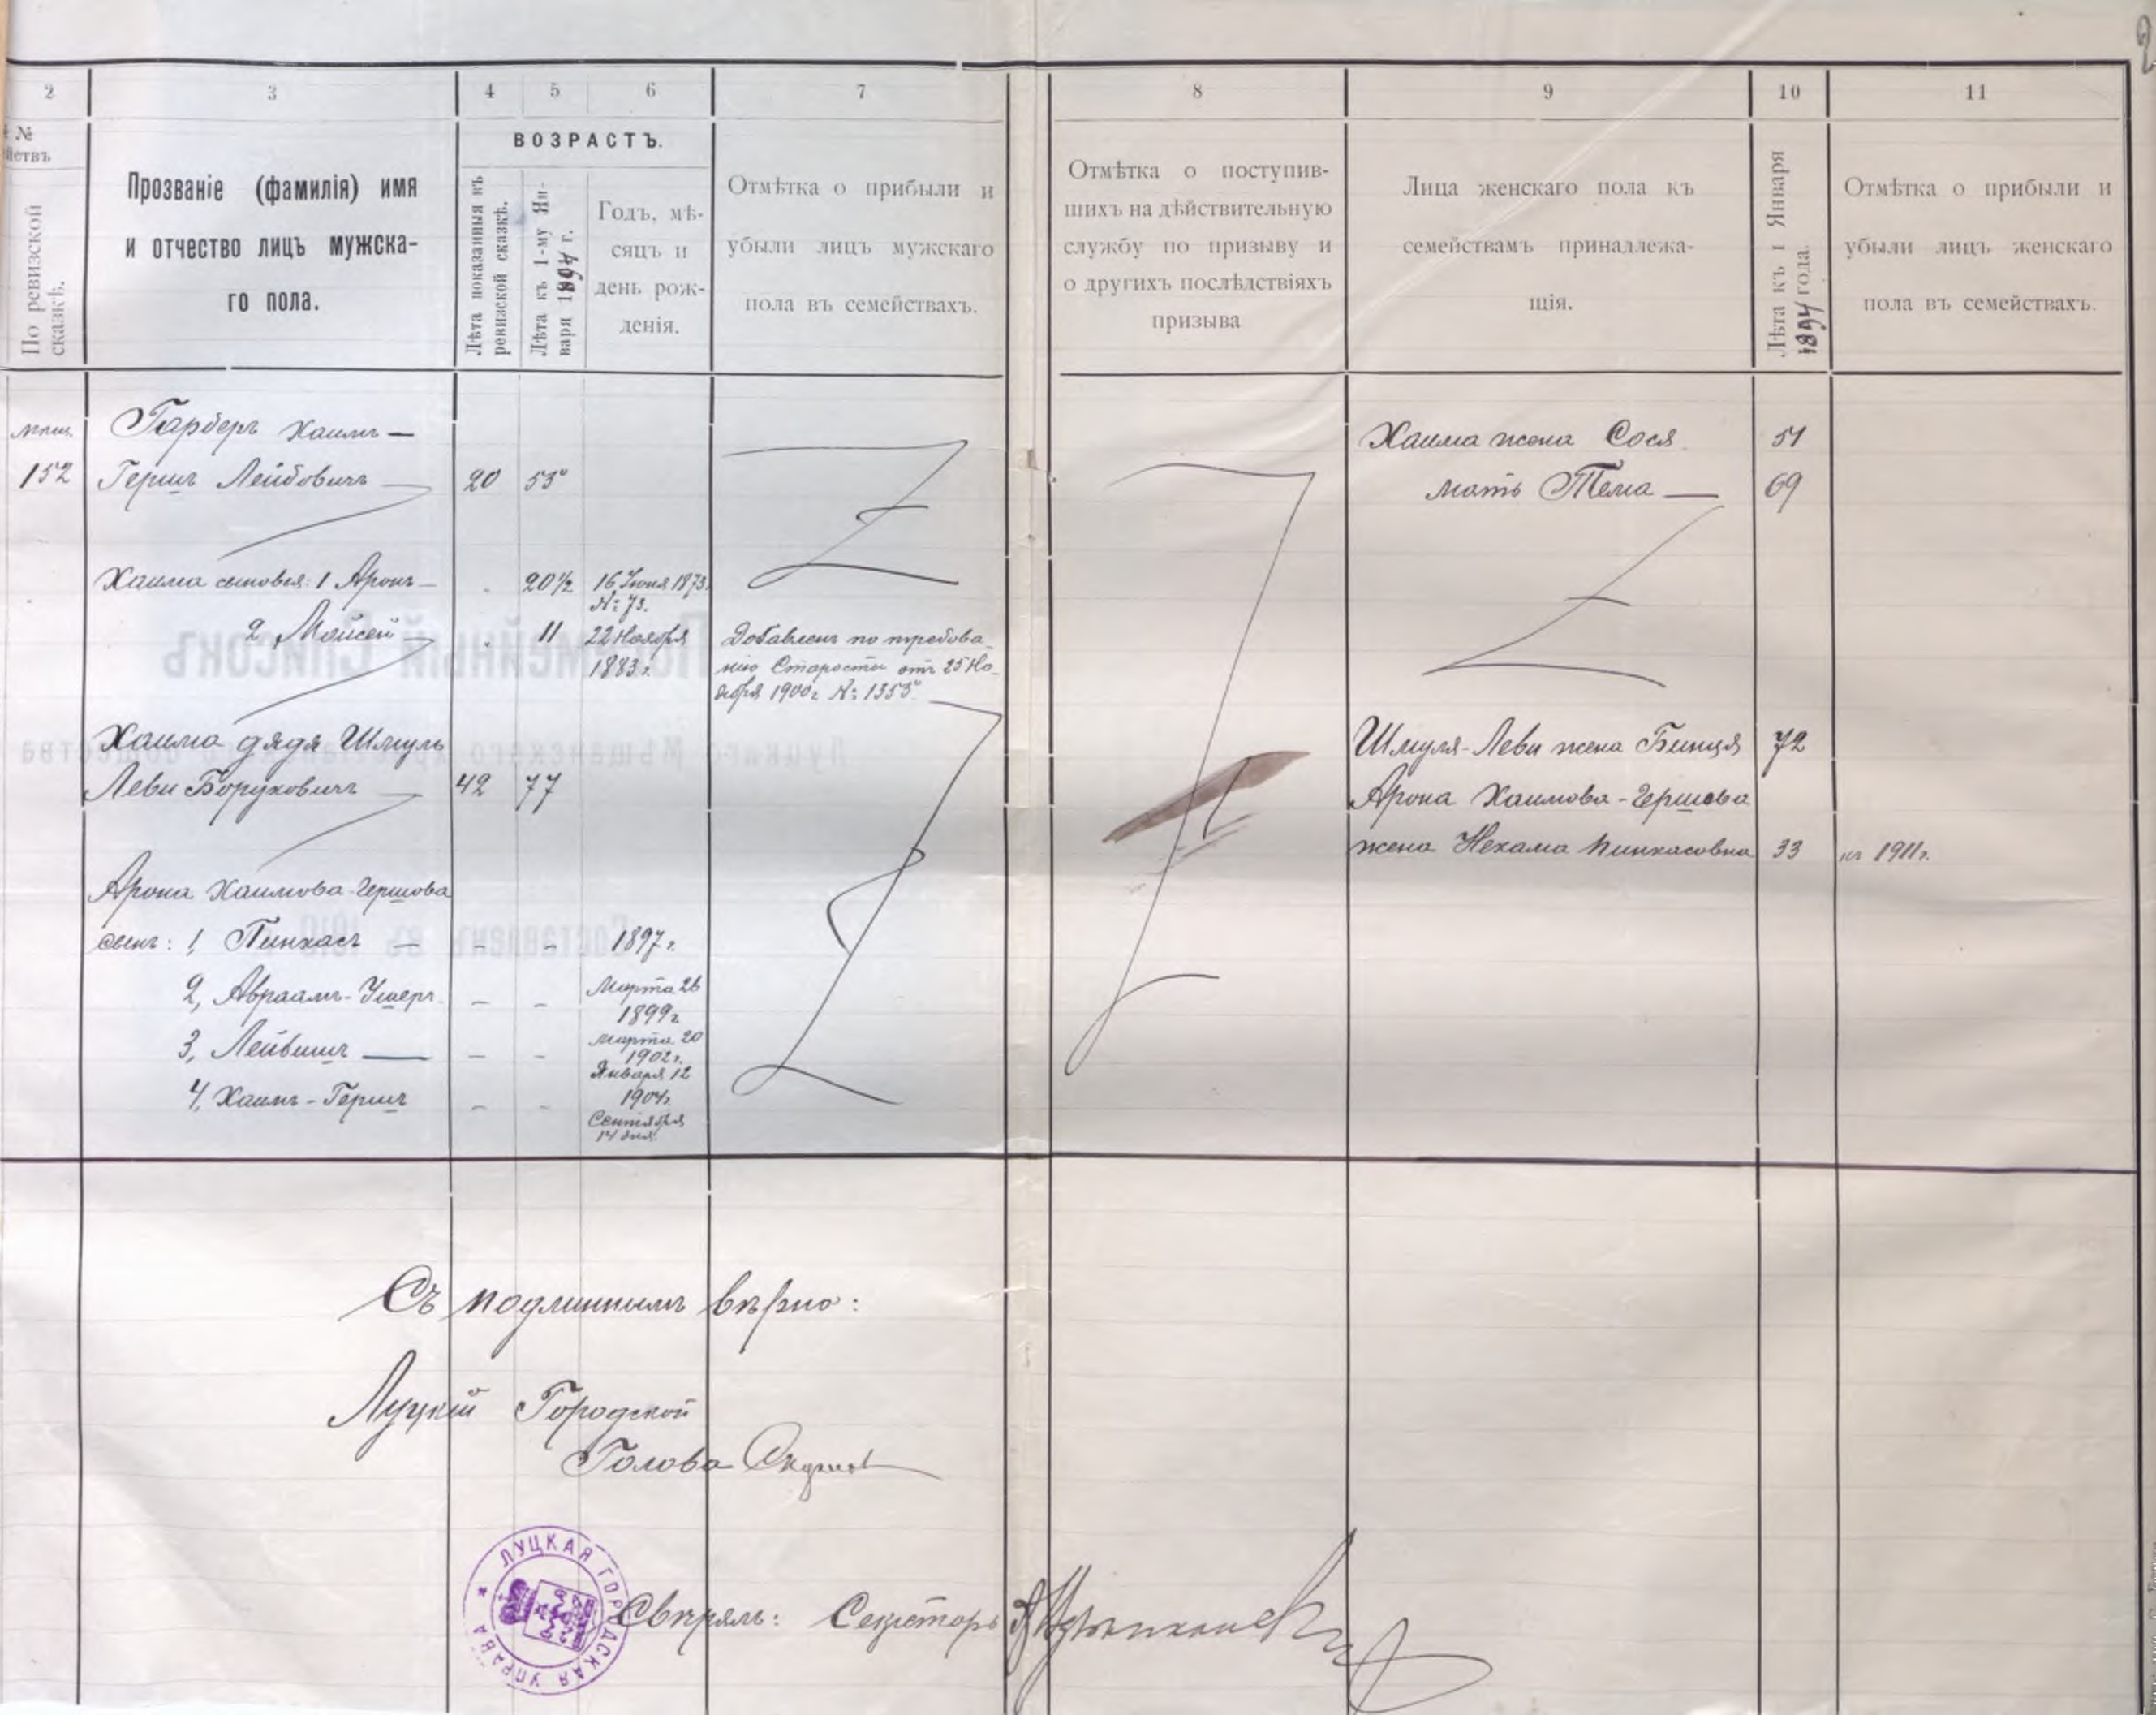 2
2 3 4 5 6 7 8 9 10 11
№
йствъ
По ревизской
сказкѣ.
Прозваніе (фамилія) имя
и отчество лицъ мужска-
го пола.
ВОЗРАСТЪ.
Лѣта показанныя въ
ревизской сказкѣ.
Лѣта къ 1-му Ян-
варя 1894 г.
Годъ, мѣ-
сяцъ и
день рож-
денія.
Отмѣтка о прибыли и
убыли лицъ мужскаго
пола въ семействахъ.
Отмѣтка о поступив-
шихъ на дѣйствительную
службу по призыву и
о другихъ послѣдствіяхъ
призыва
Лица женскаго пола къ
семействамъ принадлежа-
щія.
Лѣта къ 1 Января
1894 года.
Отмѣтка о прибыли и
убыли лицъ женскаго
пола въ семействахъ.
мѣщ. Гарберъ Хаимъ —
152 Гершъ Лейбовичъ — 20 53
Хаима сыновья: 1 Аронъ — 20½ 16 Іюня 1873
№ 73.
2 Мойсей — 11 22 Ноября
1883 г.
Добавленъ по требова
нію Старосты отъ 25 Но
ября 1900 г. № 1353
Хаима дядя Шмуль
Леви Боруховичъ — 42 77
Арона Хаимова-Гершова
сынъ: 1, Пинхасъ — – – 1897 г.
Марта 26
2, Авраамъ-Ушеръ – – 1899 г.
Марта 20
3, Лейбишъ — – – 1902 г.
Января 12
4, Хаимъ-Гершъ – – 1904 г.
Сентября
14 дня.
Хаима жена Сося 51
мать Тема — 69
Шмуля-Леви жена Бинця 72
Арона Хаимова-Гершова
жена Нехама Пинхасовна 33 къ 1911 г.
Съ подлиннымъ вѣрно:
Луцкій Городской
Голова
Свѣрялъ: Секретарь
ЛУЦКАЯ ГОРОДСКАЯ УПРАВА